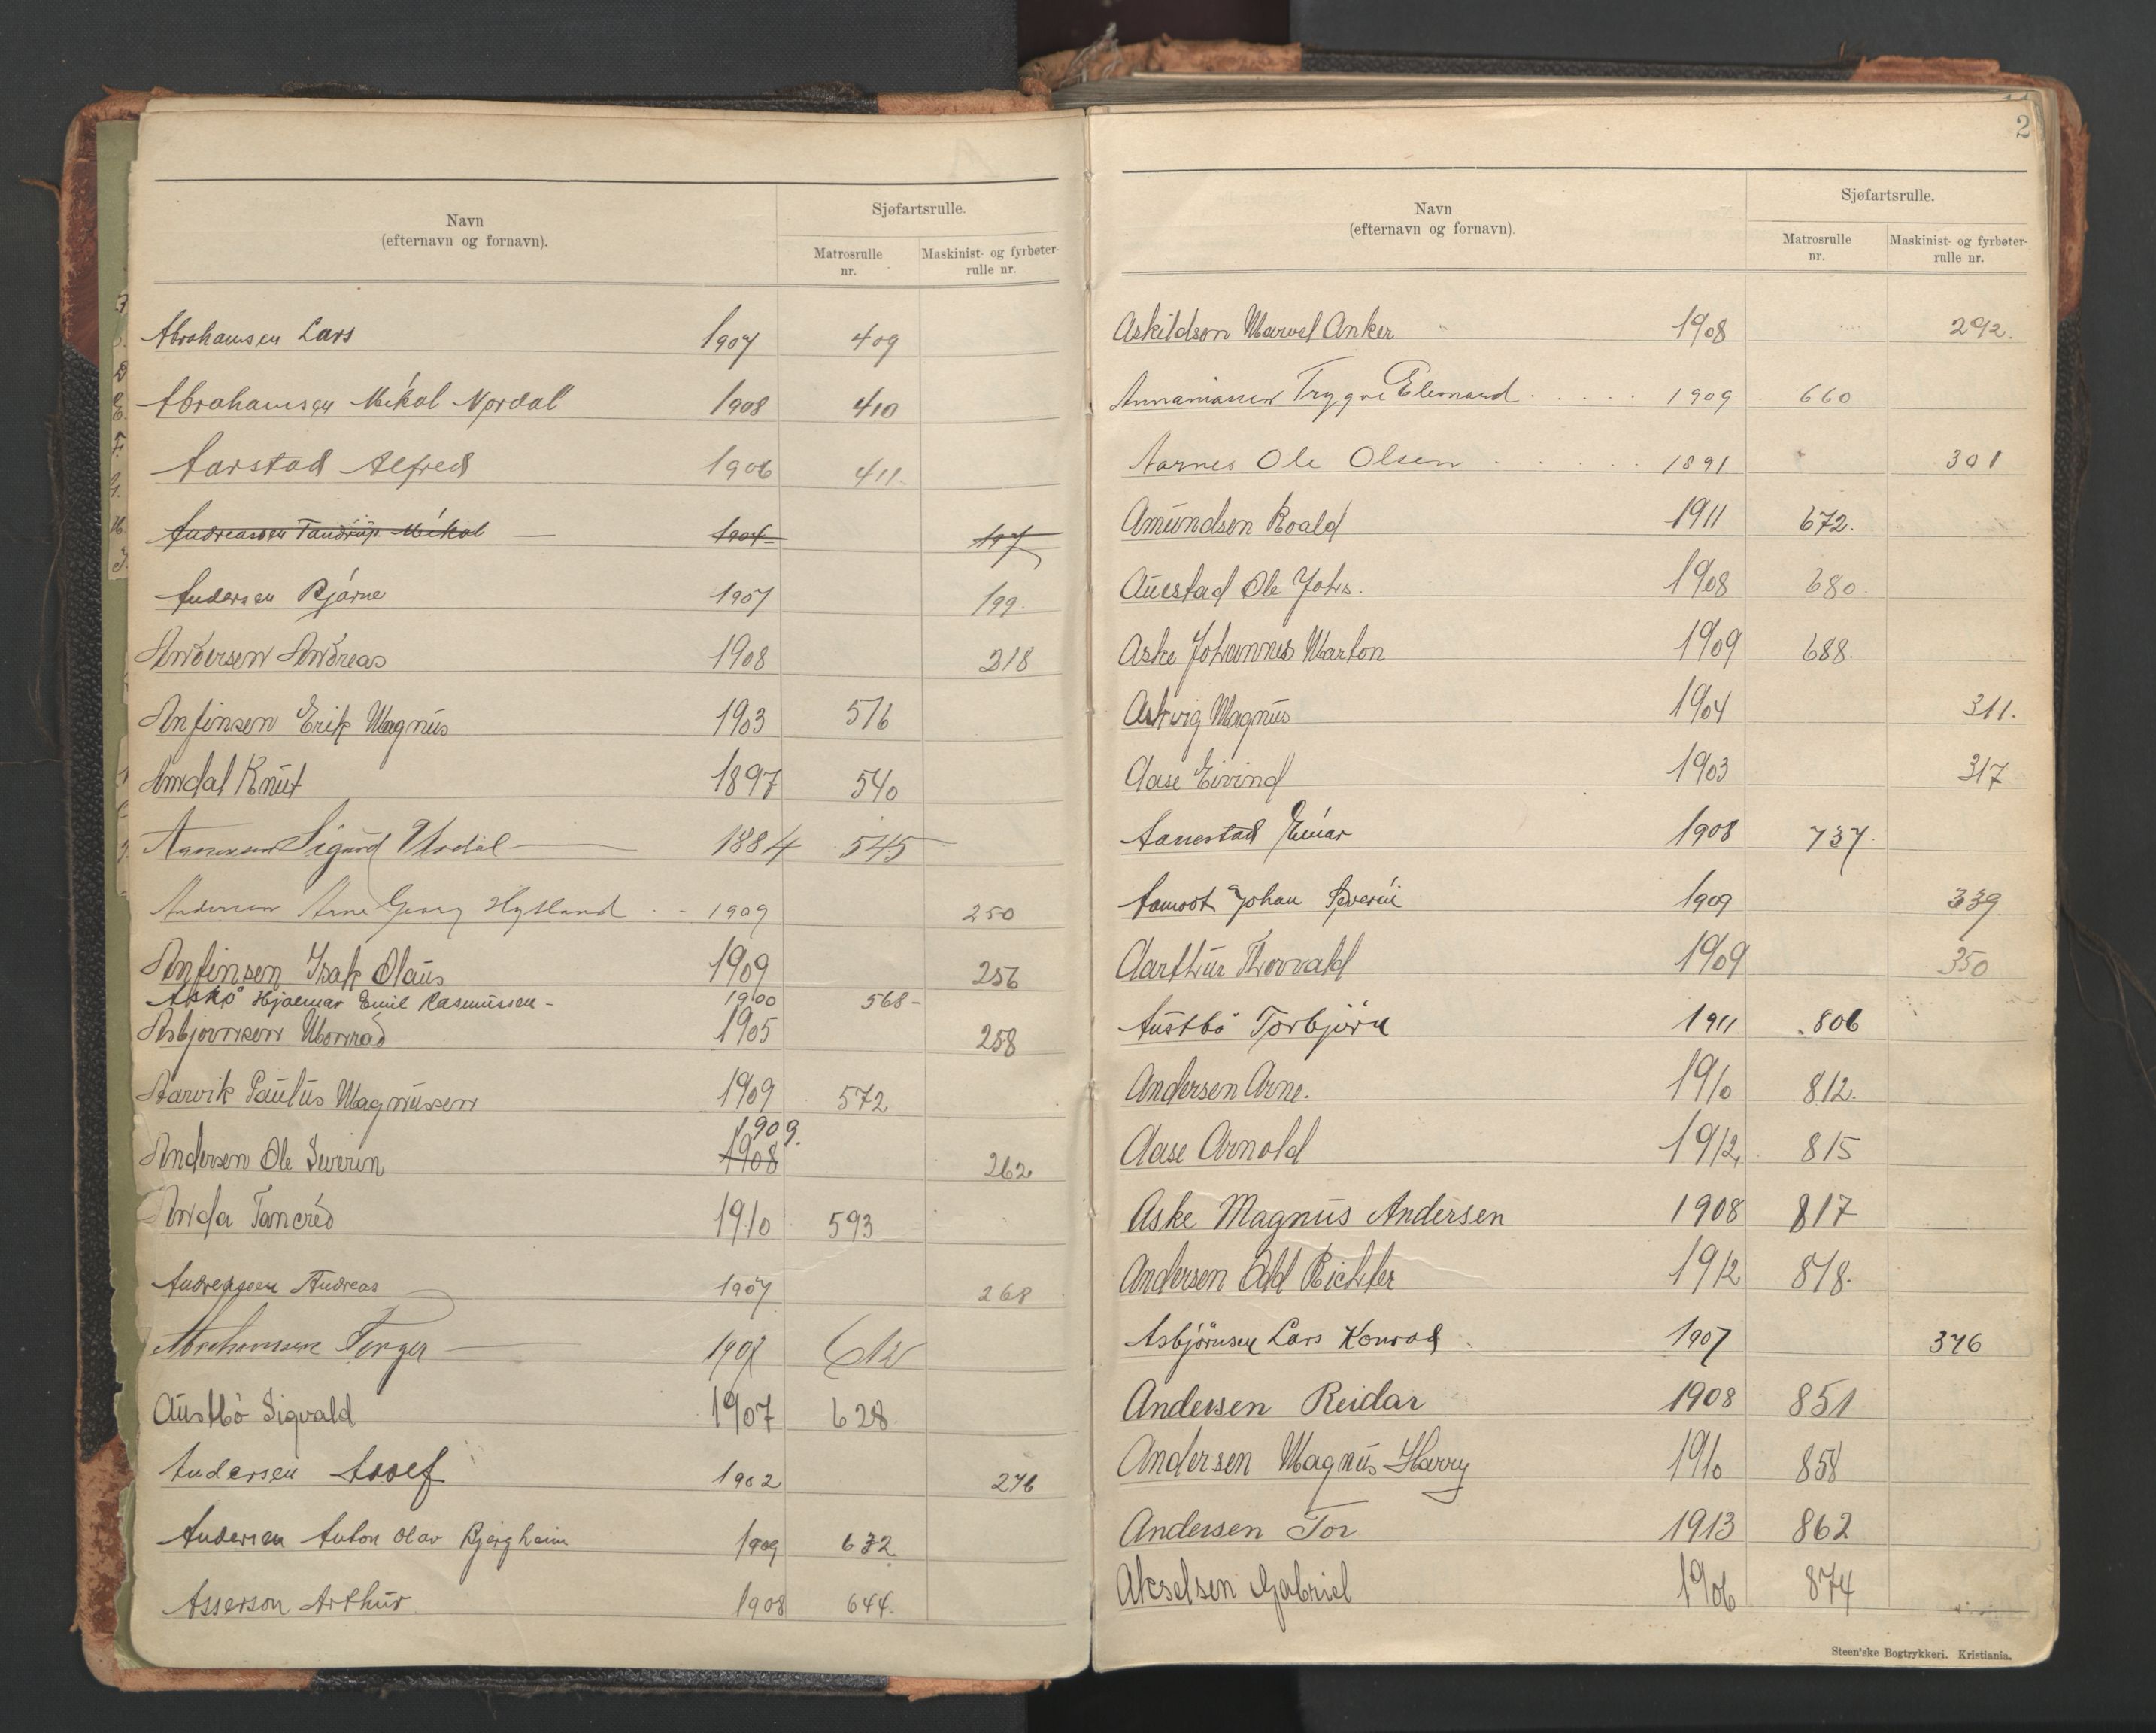 Navn
(efternavn og fornavn).
Sjøfartsrulle.
Matrosrulle
nr.
Maskinist- og fyrbøter-
rulle nr.
Abrahamsen Lars 1907 409
Abrahamsen Mikal Nordal 1908 410
Aarstad Alfred 1906 411.
Andreassen Tandrup Mikal — 1904 197
Andersen Bjarne 1907 199.
Andersen Andreas 1908 218
Anfinsen Erik Magnus 1903 516
Amdal Knut 1897 540
Sigurd 1884 545
Andersen Arne Georg Hytland 1909 250
Anfinsen Isak Olaus 1909 256
Askø Hjalmar Emil Rasmussen - 1900 568-
Asbjørnsen Monrad 1905 258
Aarvik Paulus Magnussen 1909 572
1909.
Andersen Ole Severin 1908 262
Anda Tancred 1910 593
Andreassen Andreas 1907 268
Abrahamsen Torger — 1907 612
Austbø Sigvald 1907 628
Andersen Adolf 1902 276
Andersen Anton Olav Bjergheim 1909 632
Asserson Arthur 1908 644.
2
Navn
(efternavn og fornavn).
Sjøfartsrulle.
Matrosrulle
nr.
Maskinist- og fyrbøter-
rulle nr.
Askildsen Marvel Anker 1908 292.
Annaniassen Trygve 1909 660
Aarnes Ole Olsen 1891 301
Amundsen Roald 1911 672.
Auestad Ole Johs. 1908 680.
Aske Johannes Marton 1909 688.
Askvig Magnus 1904 311.
Aase Eivind 1903 317
Aanestad Einar 1908 737.
Aamodt Johan Severin 1909 339
Aarthur Thorvald 1909 350
Austbø Torbjørn 1911 806
Andersen Arne. 1910 812.
Aase Arnold 1912 815
Aske Magnus Andersen 1908 817
Andersen Odd Richter 1912 818.
Asbjørnsen Lars Konrad 1907 376
Andersen Reidar 1908 851
Andersen Magnus Harry 1910 858
Andersen Tor 1913 862
Akselsen Gabriel 1906 874
Steen'ske Bogtrykkeri. Kristiania.